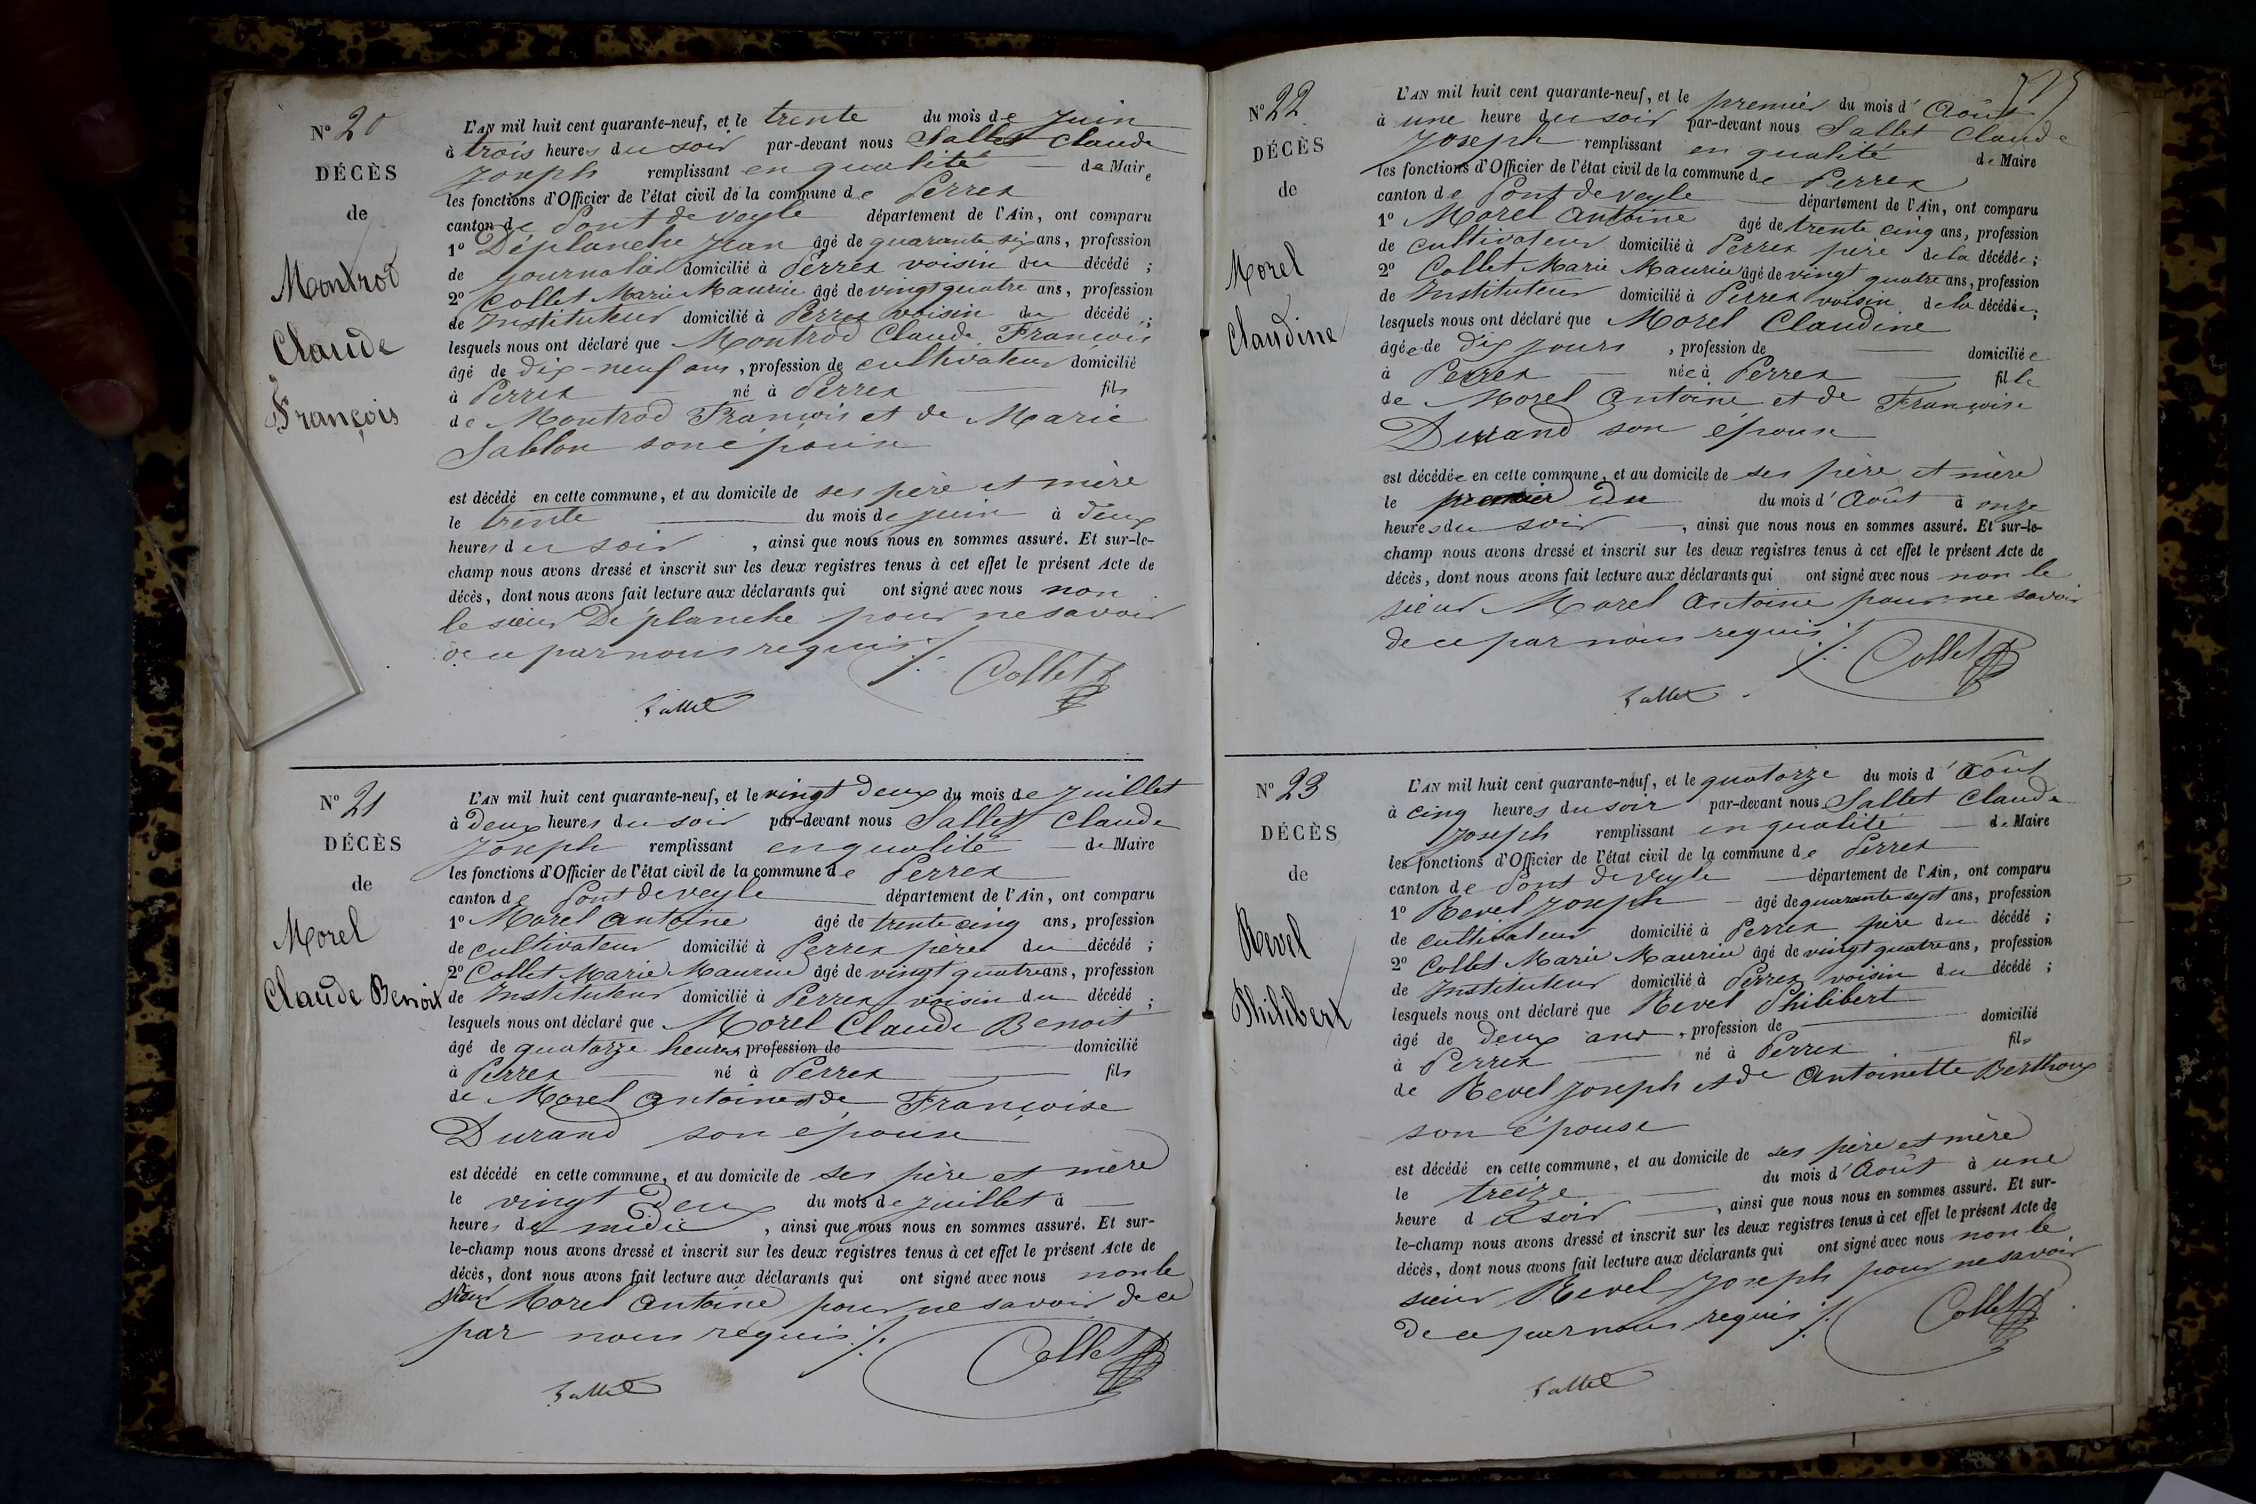 N° 20
DÉCÈS
de
Montrod
Claude
François
L'AN mil huit cent quarante-neuf, et le trente du mois de Juin
à trois heures du soir par-devant nous Sallet Claude
Joseph remplissant en qualité de Maire
les fonctions d'Officier de l'état civil de la commune de Perrex
canton de Pont de veyle département de l'Ain, ont comparu
1° Déplanche Jean âgé de quarante six ans, profession
de journalier domicilié à Perrex voisin du décédé ;
2° Collet Marie Maurice âgé de vingt quatre ans, profession
de Instituteur domicilié à Perrex voisin du décédé ;
lesquels nous ont déclaré que Montrod Claude François
âgé de dix-neuf ans, profession de cultivateur domicilié
à Perrex né à Perrex fils
de Montrod François et de Marie
Sablon son épouse
est décédé en cette commune, et au domicile de ses père et mère
le trente du mois de juin à deux
heures du soir, ainsi que nous nous en sommes assuré. Et sur-le-
champ nous avons dressé et inscrit sur les deux registres tenus à cet effet le présent Acte de
décès, dont nous avons fait lecture aux déclarants qui ont signé avec nous non
le sieur Déplanche pour ne savoir
de ce par nous requis ./.
Collet
Sallet
N° 21
DÉCÈS
de
Morel
Claude Benoit
L'AN mil huit cent quarante-neuf, et le vingt deux du mois de Juillet
à deux heures du soir par-devant nous Sallet Claude
Joseph remplissant en qualité de Maire
les fonctions d'Officier de l'état civil de la commune de Perrex
canton de Pont de veyle département de l'Ain, ont comparu
1° Morel Antoine âgé de trente cinq ans, profession
de cultivateur domicilié à Perrex père du décédé ;
2° Collet Marie Maurice âgé de vingt quatre ans, profession
de Instituteur domicilié à Perrex voisin du décédé ;
lesquels nous ont déclaré que Morel Claude Benoit
âgé de quatorze heures profession de domicilié
à Perrex né à Perrex fils
de Morel Antoine et de Françoise
Durand son épouse
est décédé en cette commune, et au domicile de ses père et mère
le vingt deux du mois de juillet à
heures de midi, ainsi que nous nous en sommes assuré. Et sur-
le-champ nous avons dressé et inscrit sur les deux registres tenus à cet effet le présent Acte de
décès, dont nous avons fait lecture aux déclarants qui ont signé avec nous non le
sieur Morel Antoine pour ne savoir de ce
par nous requis ./.
Collet
Sallet
N° 22
DÉCÈS
de
Morel
Claudine
L'AN mil huit cent quarante-neuf, et le premier du mois d'Août
à une heure du soir par-devant nous Sallet Claude
Joseph remplissant en qualité de Maire
les fonctions d'Officier de l'état civil de la commune de Perrex
canton de Pont de veyle département de l'Ain, ont comparu
1° Morel Antoine âgé de trente cinq ans, profession
de cultivateur domicilié à Perrex père de la décédée ;
2° Collet Marie Maurice âgé de vingt quatre ans, profession
de Instituteur domicilié à Perrex voisin de la décédée ;
lesquels nous ont déclaré que Morel Claudine
âgée de dix jours, profession de domiciliée
à Perrex née à Perrex fille
de Morel Antoine et de Françoise
Durand son épouse
est décédée en cette commune, et au domicile de ses père et mère
le premier du du mois d'Août à onze
heures du soir, ainsi que nous nous en sommes assuré. Et sur-le-
champ nous avons dressé et inscrit sur les deux registres tenus à cet effet le présent Acte de
décès, dont nous avons fait lecture aux déclarants qui ont signé avec nous non le
sieur Morel Antoine pour ne savoir
de ce par nous requis ./.
Collet
Sallet
N° 23
DÉCÈS
de
Revel
Philibert
L'AN mil huit cent quarante-neuf, et le quatorze du mois d'Août
à cinq heures du soir par-devant nous Sallet Claude
Joseph remplissant en qualité de Maire
les fonctions d'Officier de l'état civil de la commune de Perrex
canton de Pont de Veyle département de l'Ain, ont comparu
1° Revel Joseph âgé de quarante sept ans, profession
de cultivateur domicilié à Perrex père du décédé ;
2° Collet Marie Maurice âgé de vingt quatre ans, profession
de Instituteur domicilié à Perrex voisin du décédé ;
lesquels nous ont déclaré que Revel Philibert
âgé de deux ans, profession de domicilié
à Perrex né à Perrex fils
de Revel Joseph et de Antoinette Berthoux
son épouse
est décédé en cette commune, et au domicile de ses père et mère
le treize du mois d'Août à une
heure du soir, ainsi que nous nous en sommes assuré. Et sur-
le-champ nous avons dressé et inscrit sur les deux registres tenus à cet effet le présent Acte de
décès, dont nous avons fait lecture aux déclarants qui ont signé avec nous non le
sieur Revel Joseph pour ne savoir
de ce par nous requis ./.
Collet
Sallet